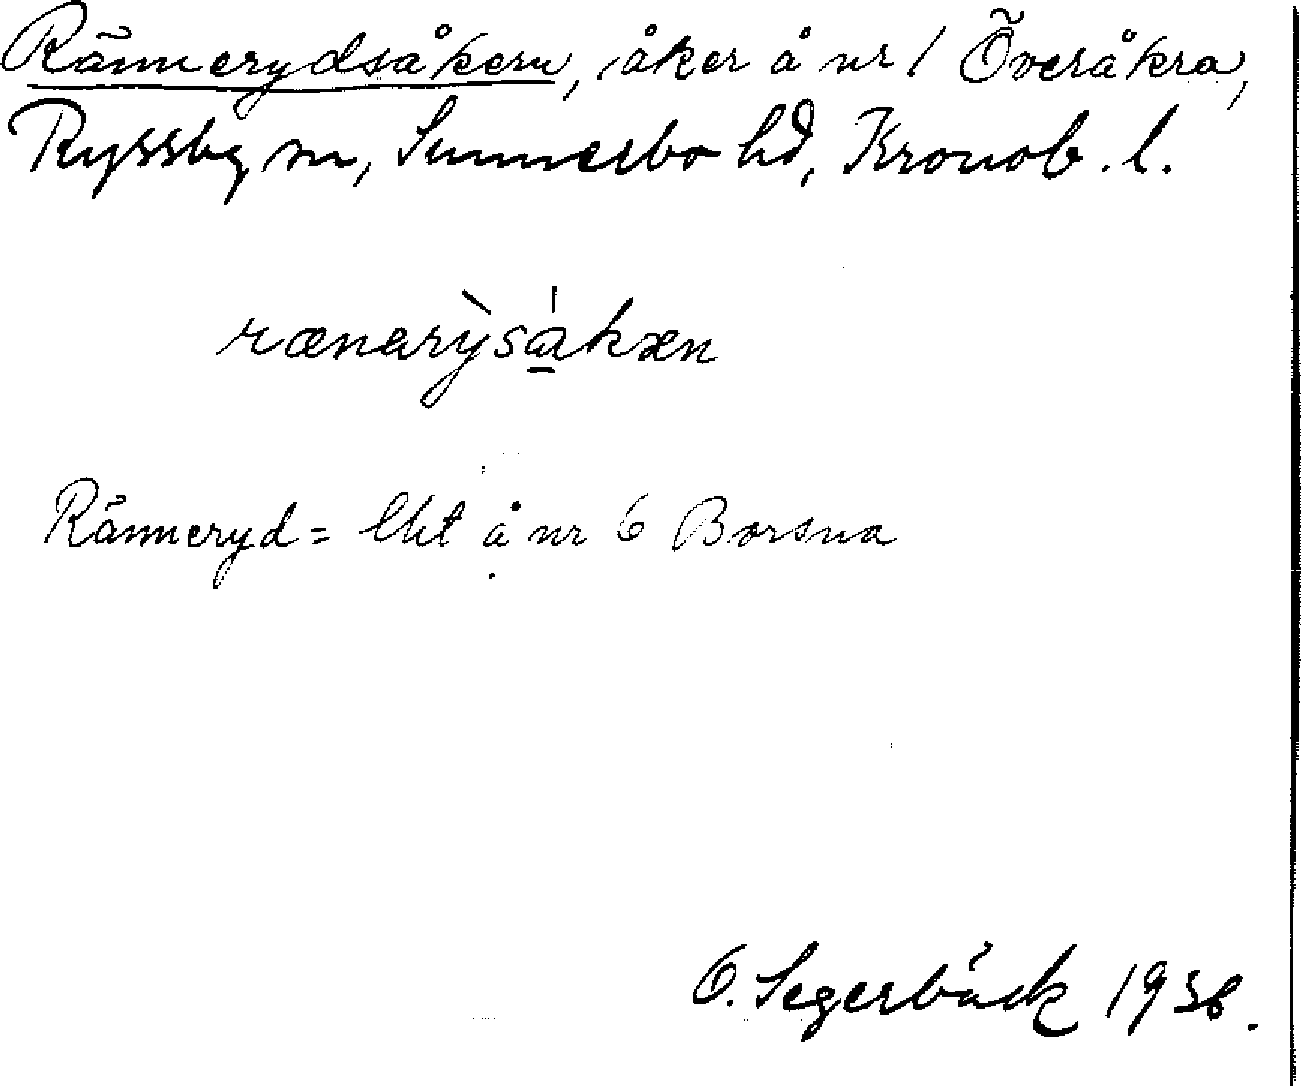 Rännerydsåkern, åker å nr 1 Överåkra,
Ryssby sn, Sunnerbo hd, Kronob. l.
rænarỳsákæn
Ränneryd = lht å nr 6 Borsna
O. Segerbäck 1936.